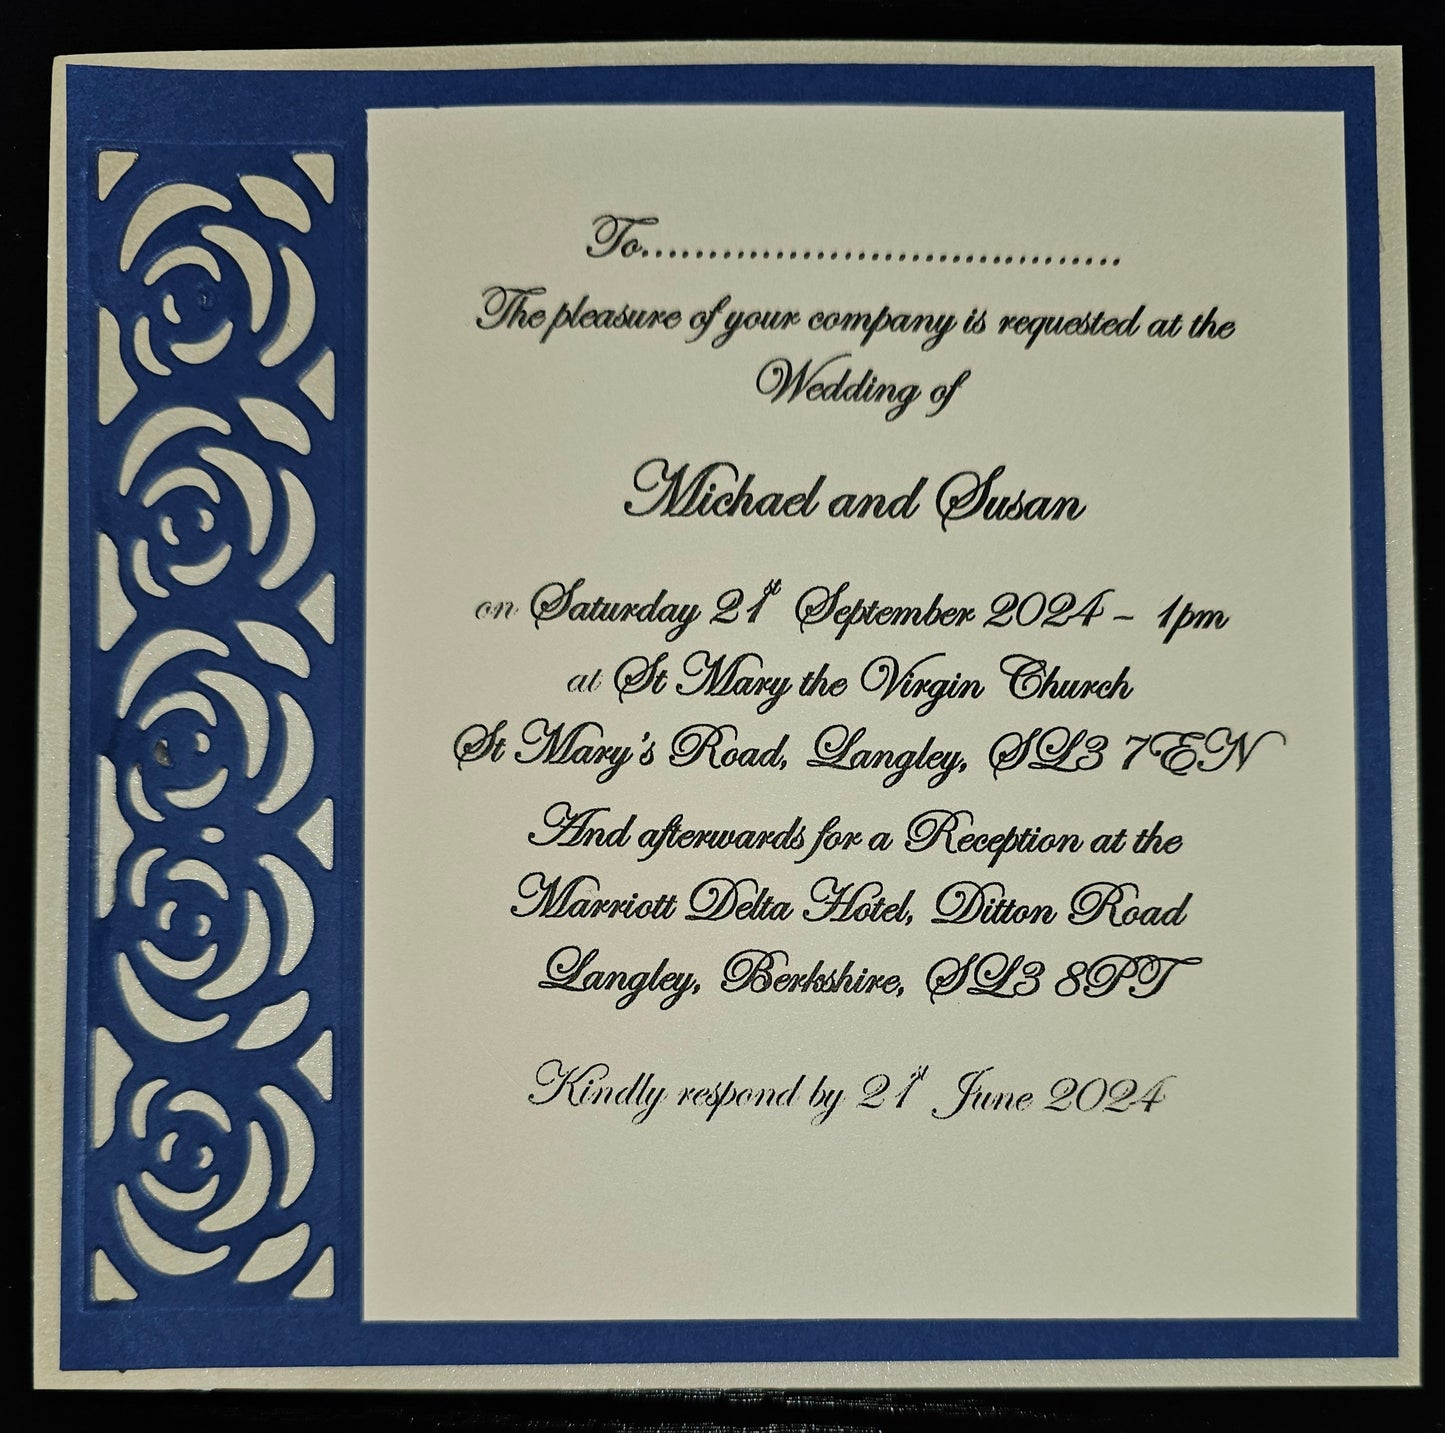 To....................................
The pleasure of your company is requested at the
Wedding of
Michael and Susan
on Saturday 21st September 2024 - 1pm
at St Mary the Virgin Church
St Mary's Road, Langley, SL3 7EN
And afterwards for a Reception at the
Marriott Delta Hotel, Ditton Road
Langley, Berkshire, SL3 8PT
Kindly respond by 21st June 2024